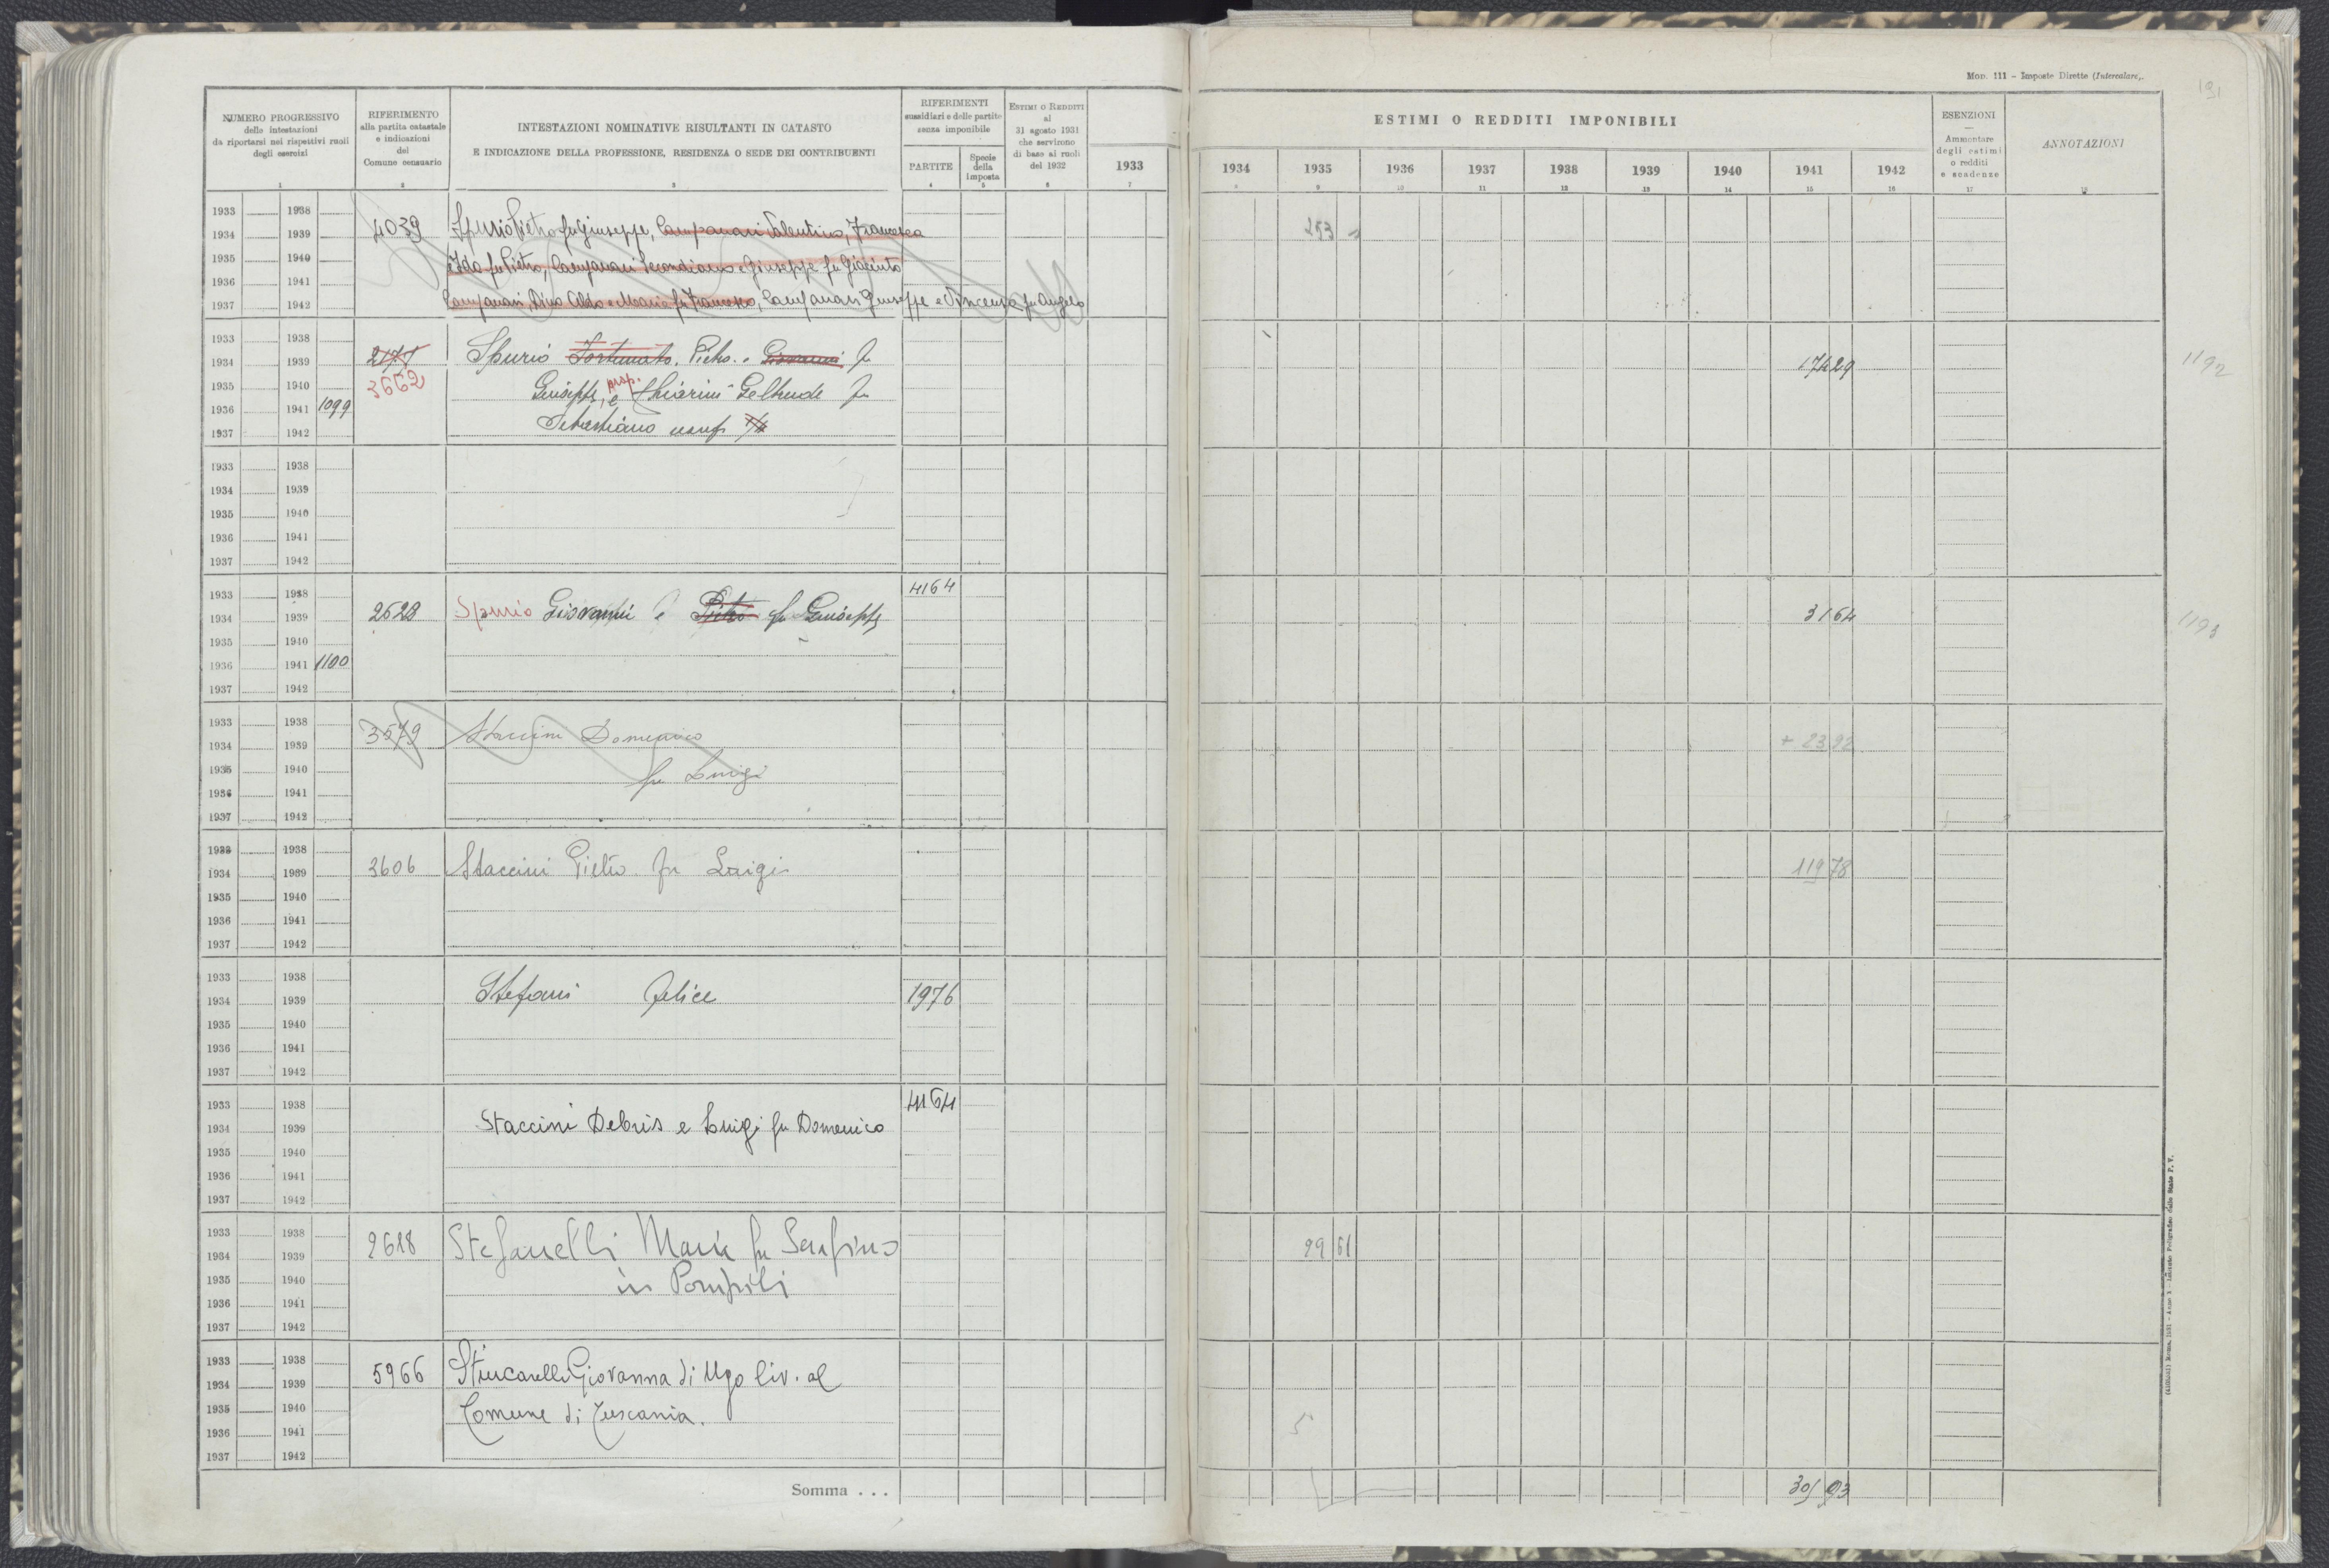 Mod. 111 - Imposte Dirette (Intercalare).
191
NUMERO PROGRESSIVO
delle intestazioni
da riportarsi nei rispettivi ruoli
degli esercizi
1
RIFERIMENTO
alla partita catastale
e indicazioni
del
Comune censuario
2
INTESTAZIONI NOMINATIVE RISULTANTI IN CATASTO
E INDICAZIONE DELLA PROFESSIONE, RESIDENZA O SEDE DEI CONTRIBUENTI
3
RIFERIMENTI
sussidiari e delle partite
senza imponibile
PARTITE
4
Specie
della
imposta
5
ESTIMI O REDDITI
al
31 agosto 1931
che servirono
di base ai ruoli
del 1932
6
1933
7
ESTIMI O REDDITI IMPONIBILI
1934 1935 1936 1937 1938 1939 1940 1941 1942
8 9 10 11 12 13 14 15 16
ESENZIONI
Ammontare
degli estimi
o redditi
e scadenze
17
ANNOTAZIONI
18
1933 1938
1934 1939 4039 Spurio Pietro fu Giuseppe, Campanari Valentino, Francesca 253
1935 1940 e Ida fu Pietro, Campanari Secondiano e Giuseppe fu Giacinto
1936 1941
1937 1942 Campanari Dino Aldo e Maria fu Francesco, Campanari Giuseppe e Vincenza fu Angelo
1933 1938
1934 1939 2171 Spurio Fortunato, Pietro e Giovanni fu 174 29 1192
1935 1940 3662 Giuseppe, prop. e Chiarini Geltrude fu
1936 1941 1099
1937 1942 Sebastiano usuf.
1933 1938
1934 1939
1935 1940
1936 1941
1937 1942
1933 1938 4164
1934 1939 2628 Spurio Giovanni e Pietro fu Giuseppe 31 64 1193
1935 1940
1936 1941 1100
1937 1942
1933 1938
1934 1939 3579 Staccini Domenico + 23 92
1935 1940 fu Luigi
1936 1941
1937 1942
1933 1938
1934 1939 3606 Staccini Pietro fu Luigi 119 78
1935 1940
1936 1941
1937 1942
1933 1938
1934 1939 Stefani Felice 1976
1935 1940
1936 1941
1937 1942
1933 1938 4164
1934 1939 Staccini Debris e Luigi fu Domenico
1935 1940
1936 1941
1937 1942
1933 1938
1934 1939 2618 Stefanelli Maria fu Serafino 99 61
1935 1940 in Pompili
1936 1941
1937 1942
1933 1938
1934 1939 5966 Stincarelli Giovanna di Ugo liv. al
1935 1940 Comune di Tuscania.
1936 1941
1937 1942
Somma . . . 301 93